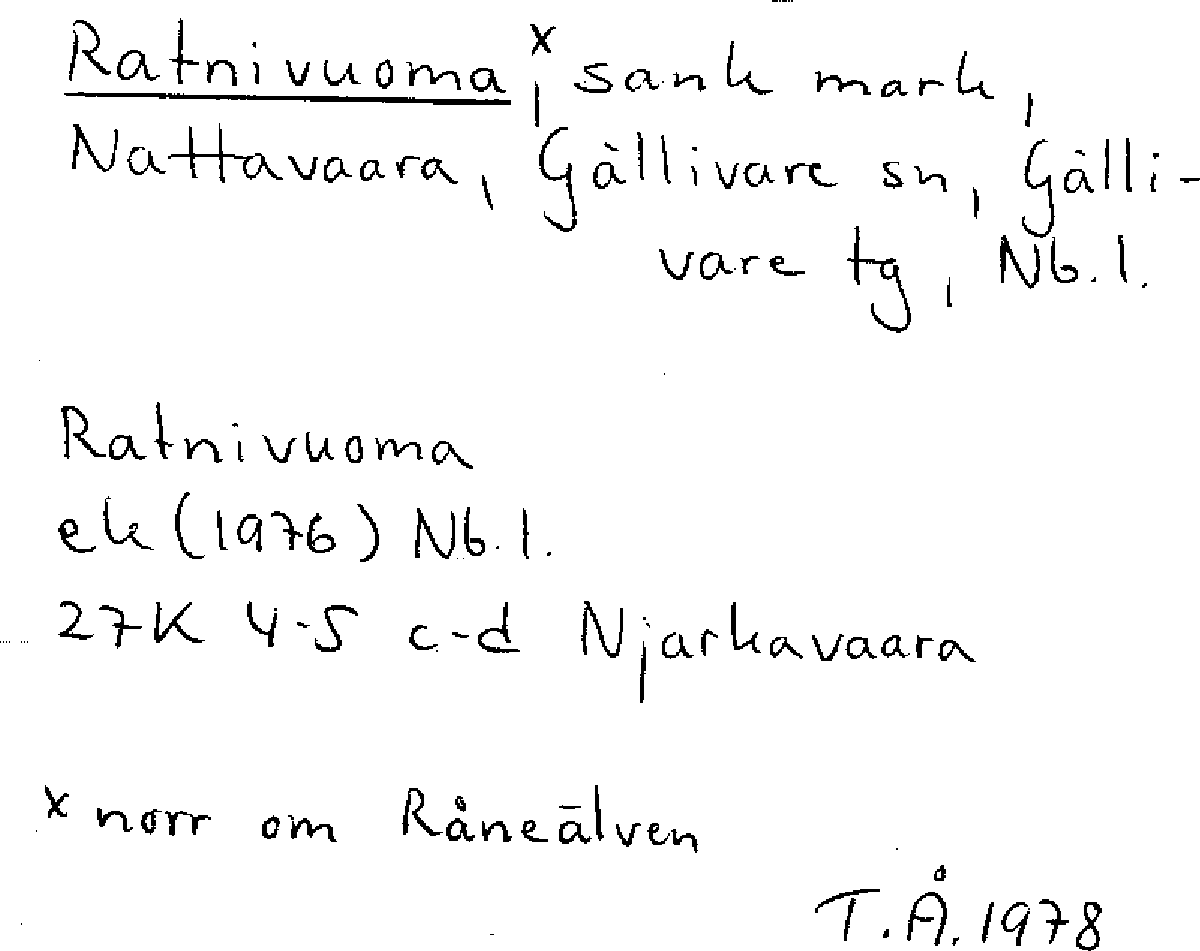 Ratnivuoma,ˣ sank mark,
Nattavaara, Gällivare sn, Gälli-
vare tg, Nb.l.
Ratnivuoma
ek (1976) Nb.l.
27K 4-5 c-d Njarkavaara
x norr om Råneälven
T.Å. 1978